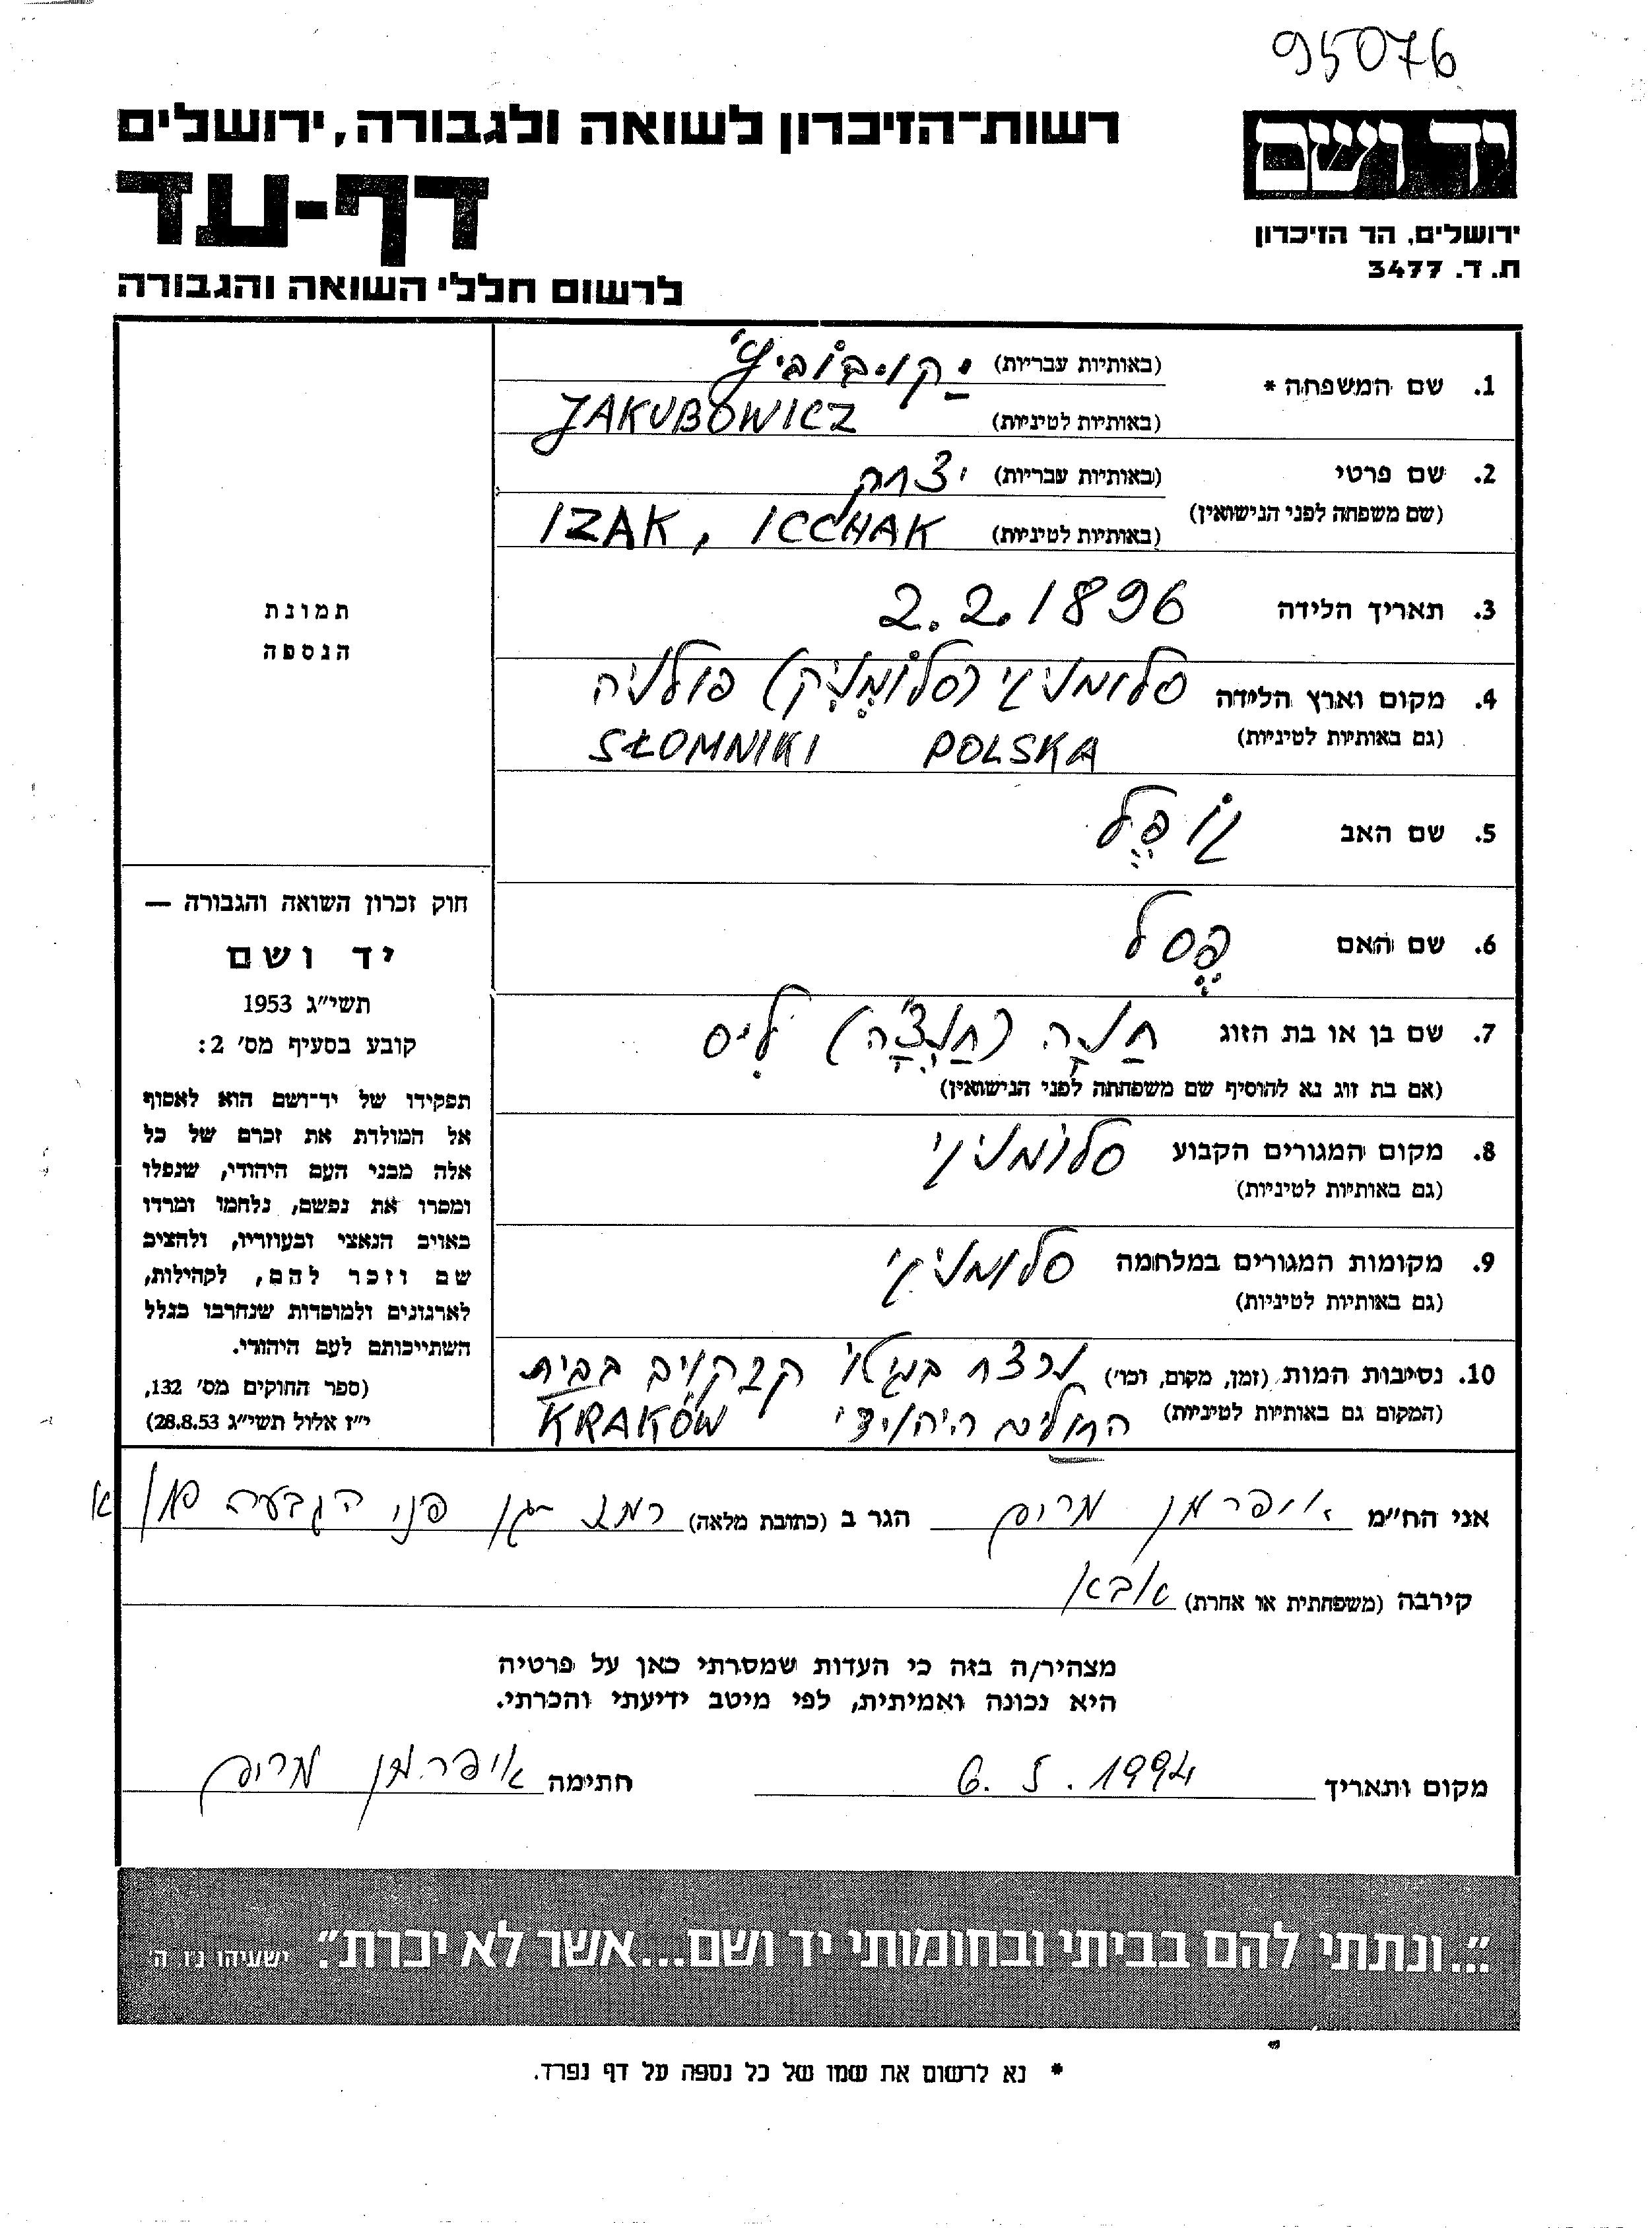 95076
יד ושם
ירושלים, הר הזיכרון
ת. ד. 3477
רשות־הזיכרון לשואה ולגבורה, ירושלים
דף-עד
לרשום חללי השואה והגבורה
1. שם המשפחה * (באותיות עבריות) יַקוּבּוֹביץ'
(באותיות לטיניות) JAKUBOWICZ
2. שם פרטי (באותיות עבריות) יצחק
(שם משפחה לפני הנישואין) (באותיות לטיניות) IZAK, ICCHAK
3. תאריך הלידה 2.2.1896
4. מקום וארץ הלידה סלומניקי (סלוֹמניק) פולניה
(גם באותיות לטיניות) SŁOMNIKI POLSKA
5. שם האב קוֹפֶּל
6. שם האם פֶּסל
7. שם בן או בת הזוג חַנָה (חַנְצָ'ה) לִיס
(אם בת זוג נא להוסיף שם משפחתה לפני הנישואין)
8. מקום המגורים הקבוע סלומניקי
(גם באותיות לטיניות)
9. מקומות המגורים במלחמה סלומניקי
(גם באותיות לטיניות)
10. נסיבות המות (זמן, מקום, וכו') נרצח בגיטו קרקוב בבית
(המקום גם באותיות לטיניות) החולים היהודי KRAKÓW
תמונת
הנספה
חוק זכרון השואה והגבורה —
יד ושם
תשי"ג 1953
קובע בסעיף מס' 2:
תפקידו של יד־ושם הוא לאסוף
אל המולדת את זכרם של כל
אלה מבני העם היהודי, שנפלו
ומסרו את נפשם, נלחמו ומרדו
באויב הנאצי ובעוזריו, ולהציב
שם וזכר להם, לקהילות,
לארגונים ולמוסדות שנחרבו בגלל
השתייכותם לעם היהודי.
(ספר החוקים מס' 132,
י"ז אלול תשי"ג 28.8.53)
אני הח"מ אופרמן מרים הגר ב (כתובת מלאה) רמת גן פני הגבעה
קירבה (משפחתית או אחרת) אבא
מצהיר/ה בזה כי העדות שמסרתי כאן על פרטיה
היא נכונה ואמיתית, לפי מיטב ידיעתי והכרתי.
מקום ותאריך 6. 5. 1994 חתימה אופרמן מרים
"...ונתתי להם בביתי ובחומותי יד ושם...אשר לא יכרת". ישעיהו נ"ו, ה'
* נא לרשום את שמו של כל נספה על דף נפרד.